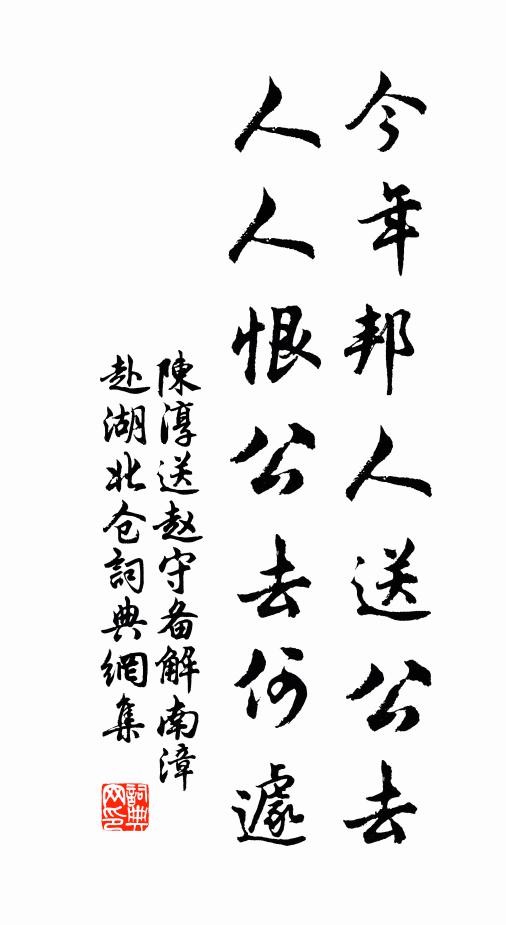 今年邦人送公去
人人恨公去何遽
陳淳送赵守备解南漳
赴湖北仓詞典網集
詞典网印